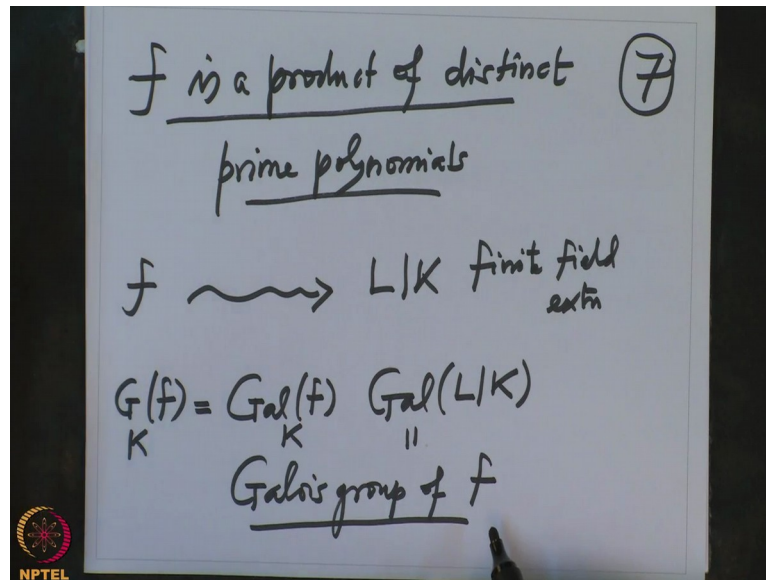 f is a product of distinct 7
prime polynomials
f ⟿ L|K finite field
extn
G_K(f) = Gal_K(f) Gal(L|K)
"
Galois group of f
NPTEL